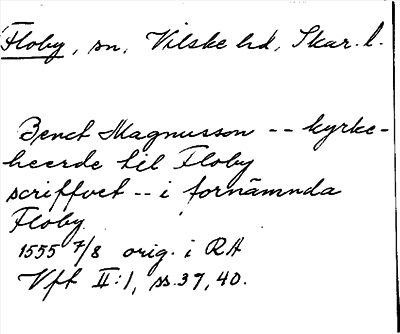 Floby, sn, Vilske hd, Skar. l.
Benct Magnusson -- kyrke-
heerde til Floby
scriffvet -- i fornämnda
Floby
1555 7/8 orig. i RA
Vft II:1, ss. 39, 40.